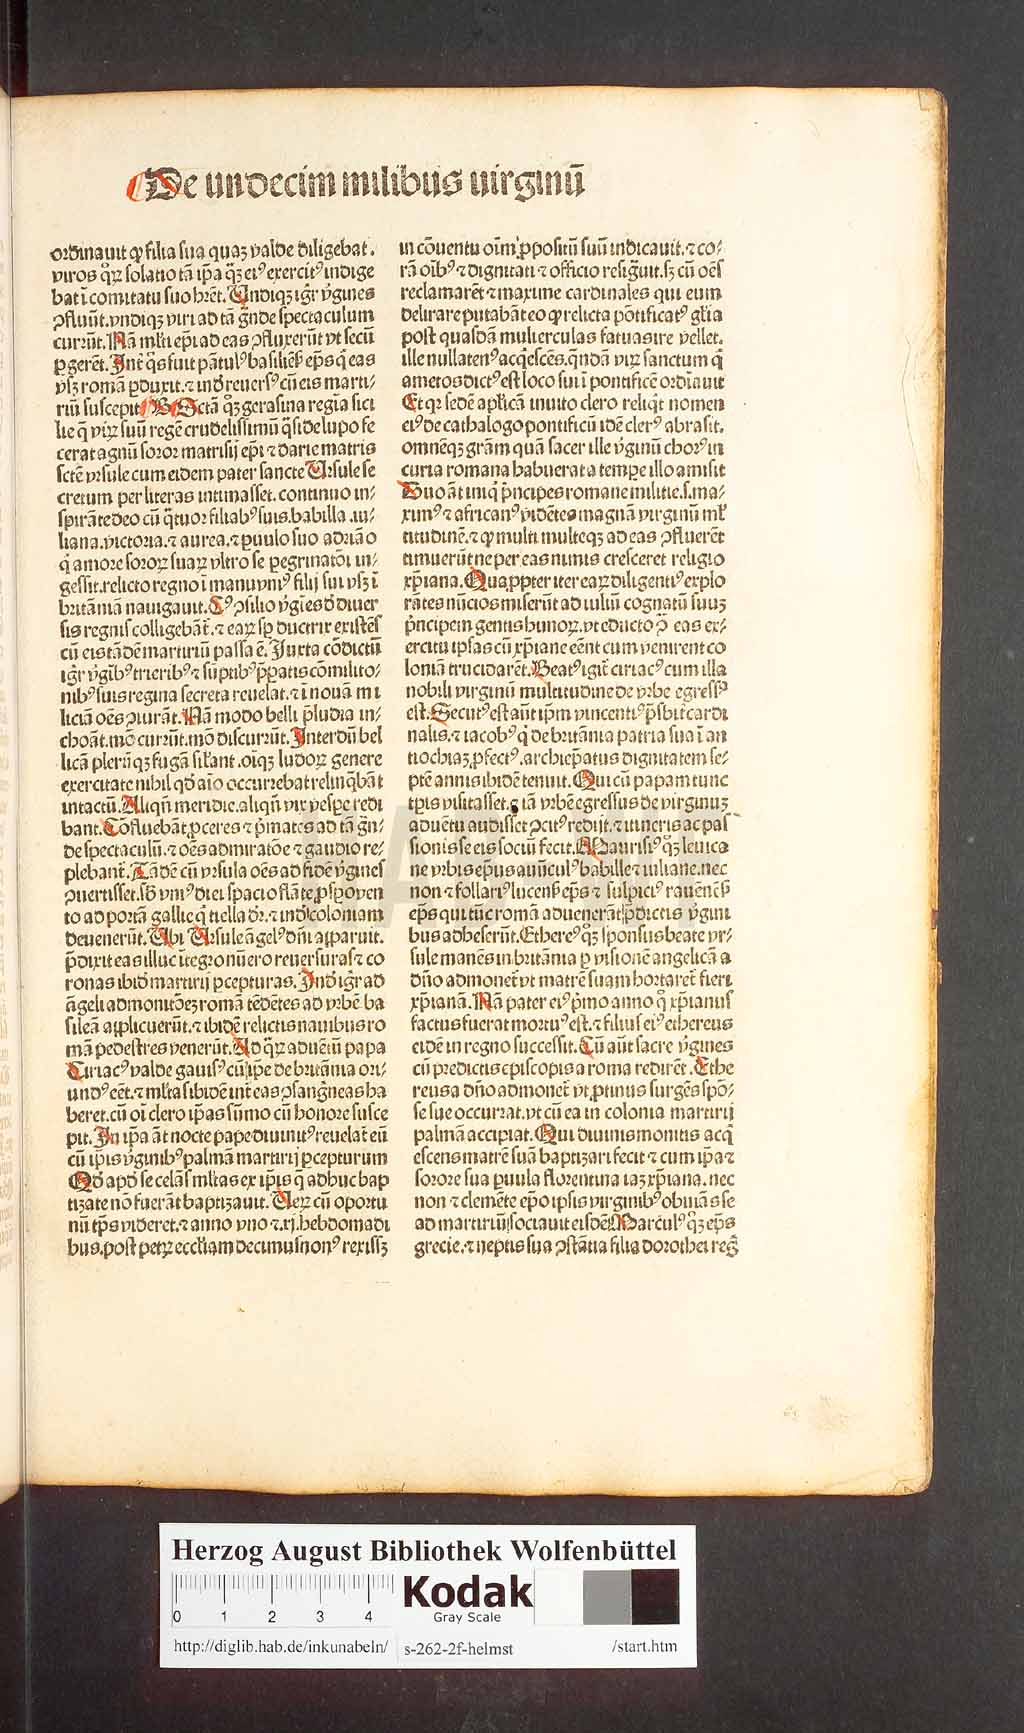 De undecim milibus uirginū
ordinauit ꝙ filia sua quaꝫ valde diligebat.
viros qͦꝫ solatio tā ip̄a q̄ꝫ eiꝰ exercitꝰ indige
bat ī comitatu suo hr̄et. Undiqꝫ igr̄ v̄gines
ꝯfluūt. vndiqꝫ viri ad tā gn̄de spectaculum
currūt. Nā ml̓ti ep̄i ad eas ꝯfluxerūt vt secū
ꝑgerēt. Int̄ q̄s fuit pātulꝰ basiliēs̄ ep̄s q̄ eas
vsꝫ romā ꝑduxit. ⁊ ind̄ reuersꝰ cū eis marti⸗
riū suscepit Sctā qͦꝫ gerasina regīa sici
lie q̄ viꝝ suū regē crudelissimū q̄si de lupo fe
cerat agnū soror matrisij ep̄i ⁊ darie matris
sctē vrsule cum eidem pater sancte Ursule se
cretum per literas intimasset. continuo in⸗
spirāte deo cū q̄tuor filiabꝰ suis. babilla. iu⸗
liana. victoria. ⁊ aurea. ⁊ ꝑuulo suo adriāo
q̄ amore soroꝝ suaꝝ vltro se ꝑegrinatōi in⸗
gessit. relicto regno ī manu vniꝰ filij sui vsꝫ ī
britāniā nauigauit. Cꝰ ꝯsilio v̄gīes d̄ diuer
sis regnis colligebāt̄. ⁊ eaꝝ sp̄ ductrix existēs
cū eis tādē martiriū passa ē. Iuxta cōdictū
igr̄ v̄gībꝰ trieribꝰ ⁊ sūptibꝰ p̄ꝑatis cōmilito⸗
nibꝰ suis regina secreta reuelat. ⁊ ī nouā mi
liciā oēs ꝯiurāt. Nā modo belli p̄ludia in⸗
choāt. mō currūt. mō discurrūt. Interdū bel
licā plerūqꝫ fugā sil̓ant. oīqꝫ ludoꝝ genere
exercitate nihil qd̄ aīo occurrebat relinq̄bāt
intactū. Aliqn̄ meridie. aliqn̄ vix vespe redi
bant. Cōfluebāt ꝓceres ⁊ p̄mates ad tā gn̄⸗
de spectaculū. ⁊ oēs admiratōe ⁊ gaudio re⸗
plebant̄. Tādē cū vrsula oēs ad fidē v̄gines
ꝯuertisset. sb̄ vniꝰ diei spacio flāte ꝓsꝑo ven
to ad portā gallie q̄ tiella dr̄. ⁊ ind̄ coloniam
deuenerūt. Ubi Ursule āgelꝰ dn̄i apparuit.
p̄dixit eas illuc ītegro nūero reuersuras ⁊ co
ronas ibid̄ martirij ꝑcepturas. Ind̄ igr̄ ad
āgeli admonitōeꝫ romā tēdētes ad vrbē ba
sileā applicuerūt. ⁊ ibidē relictis nauibus ro
mā pedestres venerūt. Ad qͦꝝ aduētū papa
Ciriacꝰ valde gauisꝰ cū ip̄e de britānia ori⸗
undꝰ eēt. ⁊ ml̓ta sibidē int̄ eas ꝯsangneas ha
beret. cū oī clero ip̄as sūmo cū honore susce
pit. In ip̄a āt nocte pape diuinitꝰ reuelat̄ eū
cū ip̄is v̄ginibꝰ palmā martirij ꝑcepturum
Qd̄ apd̄ se celās ml̓tas ex ip̄is q̄ adhuc bap
tizate nō fuerāt baptizauit. Ueꝝ cū oportu
nū tp̄s videret. ⁊ anno vno ⁊ xj. hebdomadi
bus. post petꝝ eccl̓iam decimusnonꝰ rexissꝫ
in cōuentu oīm ꝓpositū suū indicauit. ⁊ co⸗
rā oībꝰ ⁊ dignitati ⁊ officio resiḡuit. sꝫ cū oēs
reclamarēt ⁊ maxime cardinales qui eum
delirare putabāt eo ꝙ relicta pōtificatꝰ gl̓ia
post quasdā mulierculas fatuas ire vellet.
ille nullatenꝰ acq̄escēs. qn̄dā viꝝ sanctum q̄
ametos dictꝰ est loco sui ī pontificē ordīauit
Et qꝛ sedē apl̓icā inuito clero reliqt̄ nomen
eiꝰ de cathalogo pontificū idē clerꝰ abrasit.
omnēqꝫ grām quā sacer ille v̄ginū chorꝰ in
curia romana habuerat a tempe illo amisit
Duo āt iniq̄ p̄ncipes romane militie. s. ma⸗
ximꝰ ⁊ africanꝰ vidētes magnā virginū ml̓
titudinē. ⁊ ꝙ multi multeqꝫ ad eas ꝯfluerēt
timuerūt ne per eas nimis cresceret religio
xp̄iana. Qua ꝓpter iter eaꝝ diligentiꝰ explo
rātes nūcios miserūt ad iuliū cognatū suuꝫ
p̄ncipem gentis hunoꝝ. vt educto ꝯ̄ eas ex⸗
ercitu ipsas cū xp̄iane eēnt cum venirent co
loniā trucidarēt. Beatꝰ igit̄ ciriacꝰ cum illa
nobili virginū multitudine de vrbe egressꝰ
est. Secutꝰ est aūt ip̄m vincentiꝰ p̄sbit̄ cardi
nalis. ⁊ iacobꝰ q̄ de britānia patria sua ī an
tiochiaꝫ ꝓfectꝰ. archiep̄atus dignitatem se⸗
ptē annis ibidē tenuit. Qui cū papam tunc
tp̄is visitasset. ⁊ iā vrbē egressus de virginuꝫ
aduētu audisset ꝯcitꝰ redijt. ⁊ itineris ac pas
sionis se eis sociū fecit. Maurisiꝰ qͦꝫ leuica
ne vrbis ep̄us auūculꝰ babille ⁊ iuliane. nec
non ⁊ follariꝰ lucens̄ ep̄s ⁊ sulpiciꝰ rauēnēs̄
ep̄s qui tūc romā aduenerāt p̄dictis v̄gini
bus adheserūt. Ethereꝰ qͦꝫ sponsus beate vr⸗
sule manēs in britānia ꝑ visionē angelicā a
dn̄o admonet̄ vt matrē suam hortaret̄ fieri
xp̄ianā. Nā pater eiꝰ p̄mo anno q̄ xp̄ianus
factus fuerat mortuꝰ est. ⁊ filius eiꝰ ethereus
eidē in regno successit. Cū aūt sacre v̄gines
cū predictis episcopis a roma redirēt. Ethe
reus a dn̄o admonet̄ vt ꝓtinus surgēs spō⸗
se sue occurrat. vt cū ea in colonia martirij
palmā accipiat. Qui diuinis monitis acq̄
escens matrē suā baptizari fecit ⁊ cum ip̄a ⁊
sorore sua ꝑuula florentina iaꝫ xp̄iana. nec
non ⁊ clemēte ep̄o ipsis virginibꝰ obuiās se
ad martiriū sociauit eisdē. Marculꝰ qͦꝫ ep̄s
grecie. ⁊ neptis sua ꝯstātia filia dorothei reḡ
HAB-WF
Herzog August Bibliothek Wolfenbüttel
0 1 2 3 4
Kodak
Gray Scale
http://diglib.hab.de/inkunabeln/ s-262-2f-helmst /start.htm